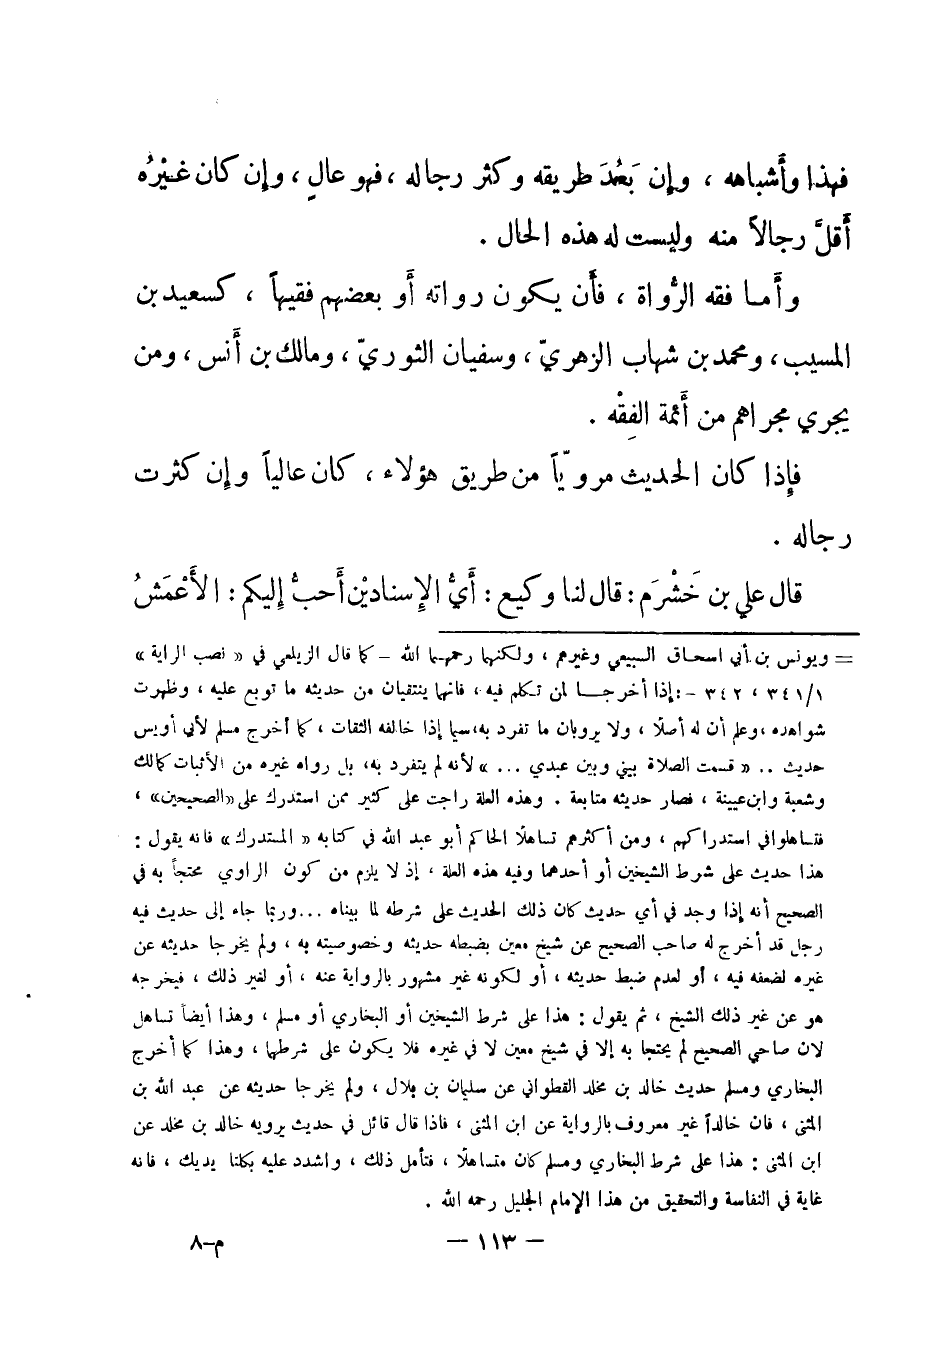 فهذا وأَشباهه ، وإِن بَعُدَ طريقه وكثر رجاله ، فهو عالٍ ، وإِن كان غيْرُه
أَقلَّ رجالاً منه وليست له هذه الحال .
وأَما فقه الرُّواة ، فأَن يكون رواته أَو بعضهم فقيهاً ، كسعيد بن
المسيب ، ومحمد بن شهاب الزهريّ ، وسفيان الثوريّ ، ومالك بن أَنس ، ومن
يجري مجراهم من أَئمة الفِقْه .
فإِذا كان الحديث مرويّاً من طريق هؤلاء ، كان عالياً وإِن كثرت
رجاله .
قال علي بن خَشْرَم : قال لنا وكيع : أَيُّ الإِسناديْن أَحبُّ إِليكم : الأَعْمَشُ
= ويونس بن أبي اسحاق السبيعي وغيرهم ، ولكنها رحمهما الله – كما قال الزيلعي في « نصب الراية »
٣٤١/١ ، ٣٤٢ - : إذا أخرجا لمن تكلم فيه ، فانها ينتقيان من حديثه ما توبع عليه ، وظهرت
شواهده ، وعلم أن له أصلًا ، ولا يرويان ما تفرد به ، سيما إذا خالفه الثقات ، كما أخرج مسلم لأبي أويس
حديث .. « قسمت الصلاة بيني وبين عبدي ... » لأنه لم يتفرد به ، بل رواه غيره من الأثبات كمالك
وشعبة وابن عيينة ، فصار حديثه متابعة . وهذه العلة راجت على كثير ممن استدرك على «الصحيحين» ،
فتساهلوا في استدراكهم ، ومن أكثرهم تساهلًا الحاكم أبو عبد الله في كتابه « المستدرك » فانه يقول :
هذا حديث على شرط الشيخين أو أحدهما وفيه هذه العلة ، إذ لا يلزم من كون الراوي محتجاً به في
الصحيح أنه إذا وجد في أي حديث كان ذلك الحديث على شرطه لما بيناه ... وربما جاء إلى حديث فيه
رجل قد أخرج له صاحب الصحيح عن شيخ معين بضبطه حديثه وخصوصيته به ، ولم يخرجا حديثه عن
غيره لضعفه فيه ، أو لعدم ضبط حديثه ، أو لكونه غير مشهور بالرواية عنه ، أو لغير ذلك ، فيخرجه
هو عن غير ذلك الشيخ ، ثم يقول : هذا على شرط الشيخين أو البخاري أو مسلم ، وهذا أيضاً تساهل
لان صاحبي الصحيح لم يحتجا به إلا في شيخ معين لا في غيره فلا يكون على شرطها ، وهذا كما أخرج
البخاري ومسلم حديث خالد بن مخلد القطواني عن سليمان بن بلال ، ولم يخرجا حديثه عن عبد الله بن
المثنى ، فان خالداً غير معروف بالرواية عن ابن المثنى ، فاذا قال قائل في حديث يرويه خالد بن مخلد عن
ابن المثنى : هذا على شرط البخاري ومسلم كان متساهلًا ، فتأمل ذلك ، واشدد عليه بكلتا يديك ، فانه
غاية في النفاسة والتحقيق من هذا الإمام الجليل رحمه الله .
– ١١٣ –
م-٨